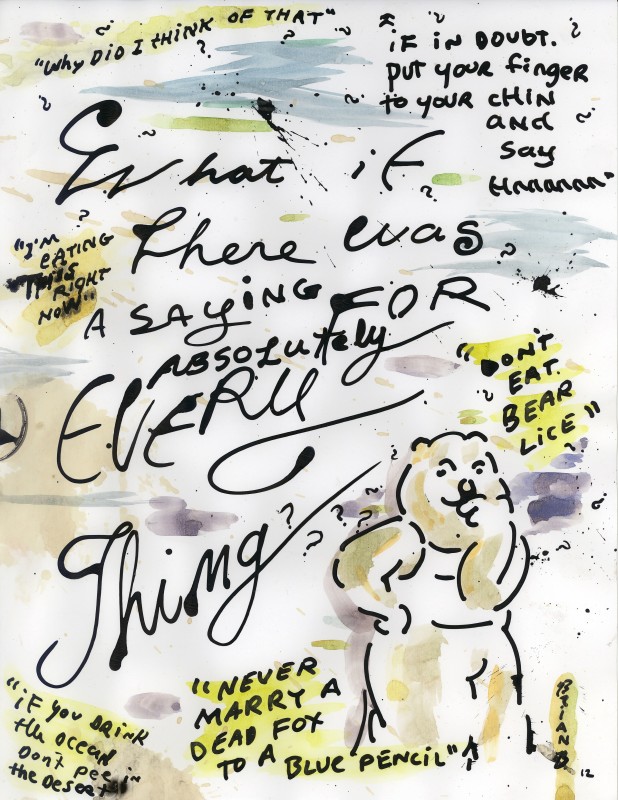 "Why DiD I thiNK OF THAT"
iF iN DOUBT.
put your finger
to your CHiN
and
say
Hmmmmm"
What if
there was
A SAYiNG FOR
ABSOLUtely
EVERY
Thing
???
"I'M
EATING
THiS
RIGHT
NOW"
"DON't
EAT.
BEAR
LiCE"
"NEVER
MARRY A
DEAD FOX
TO A BLUE PENCiL"
"iF YOU DRiNK
the OCEAN
Don't pee in
the Desert"
BRiAN B
12